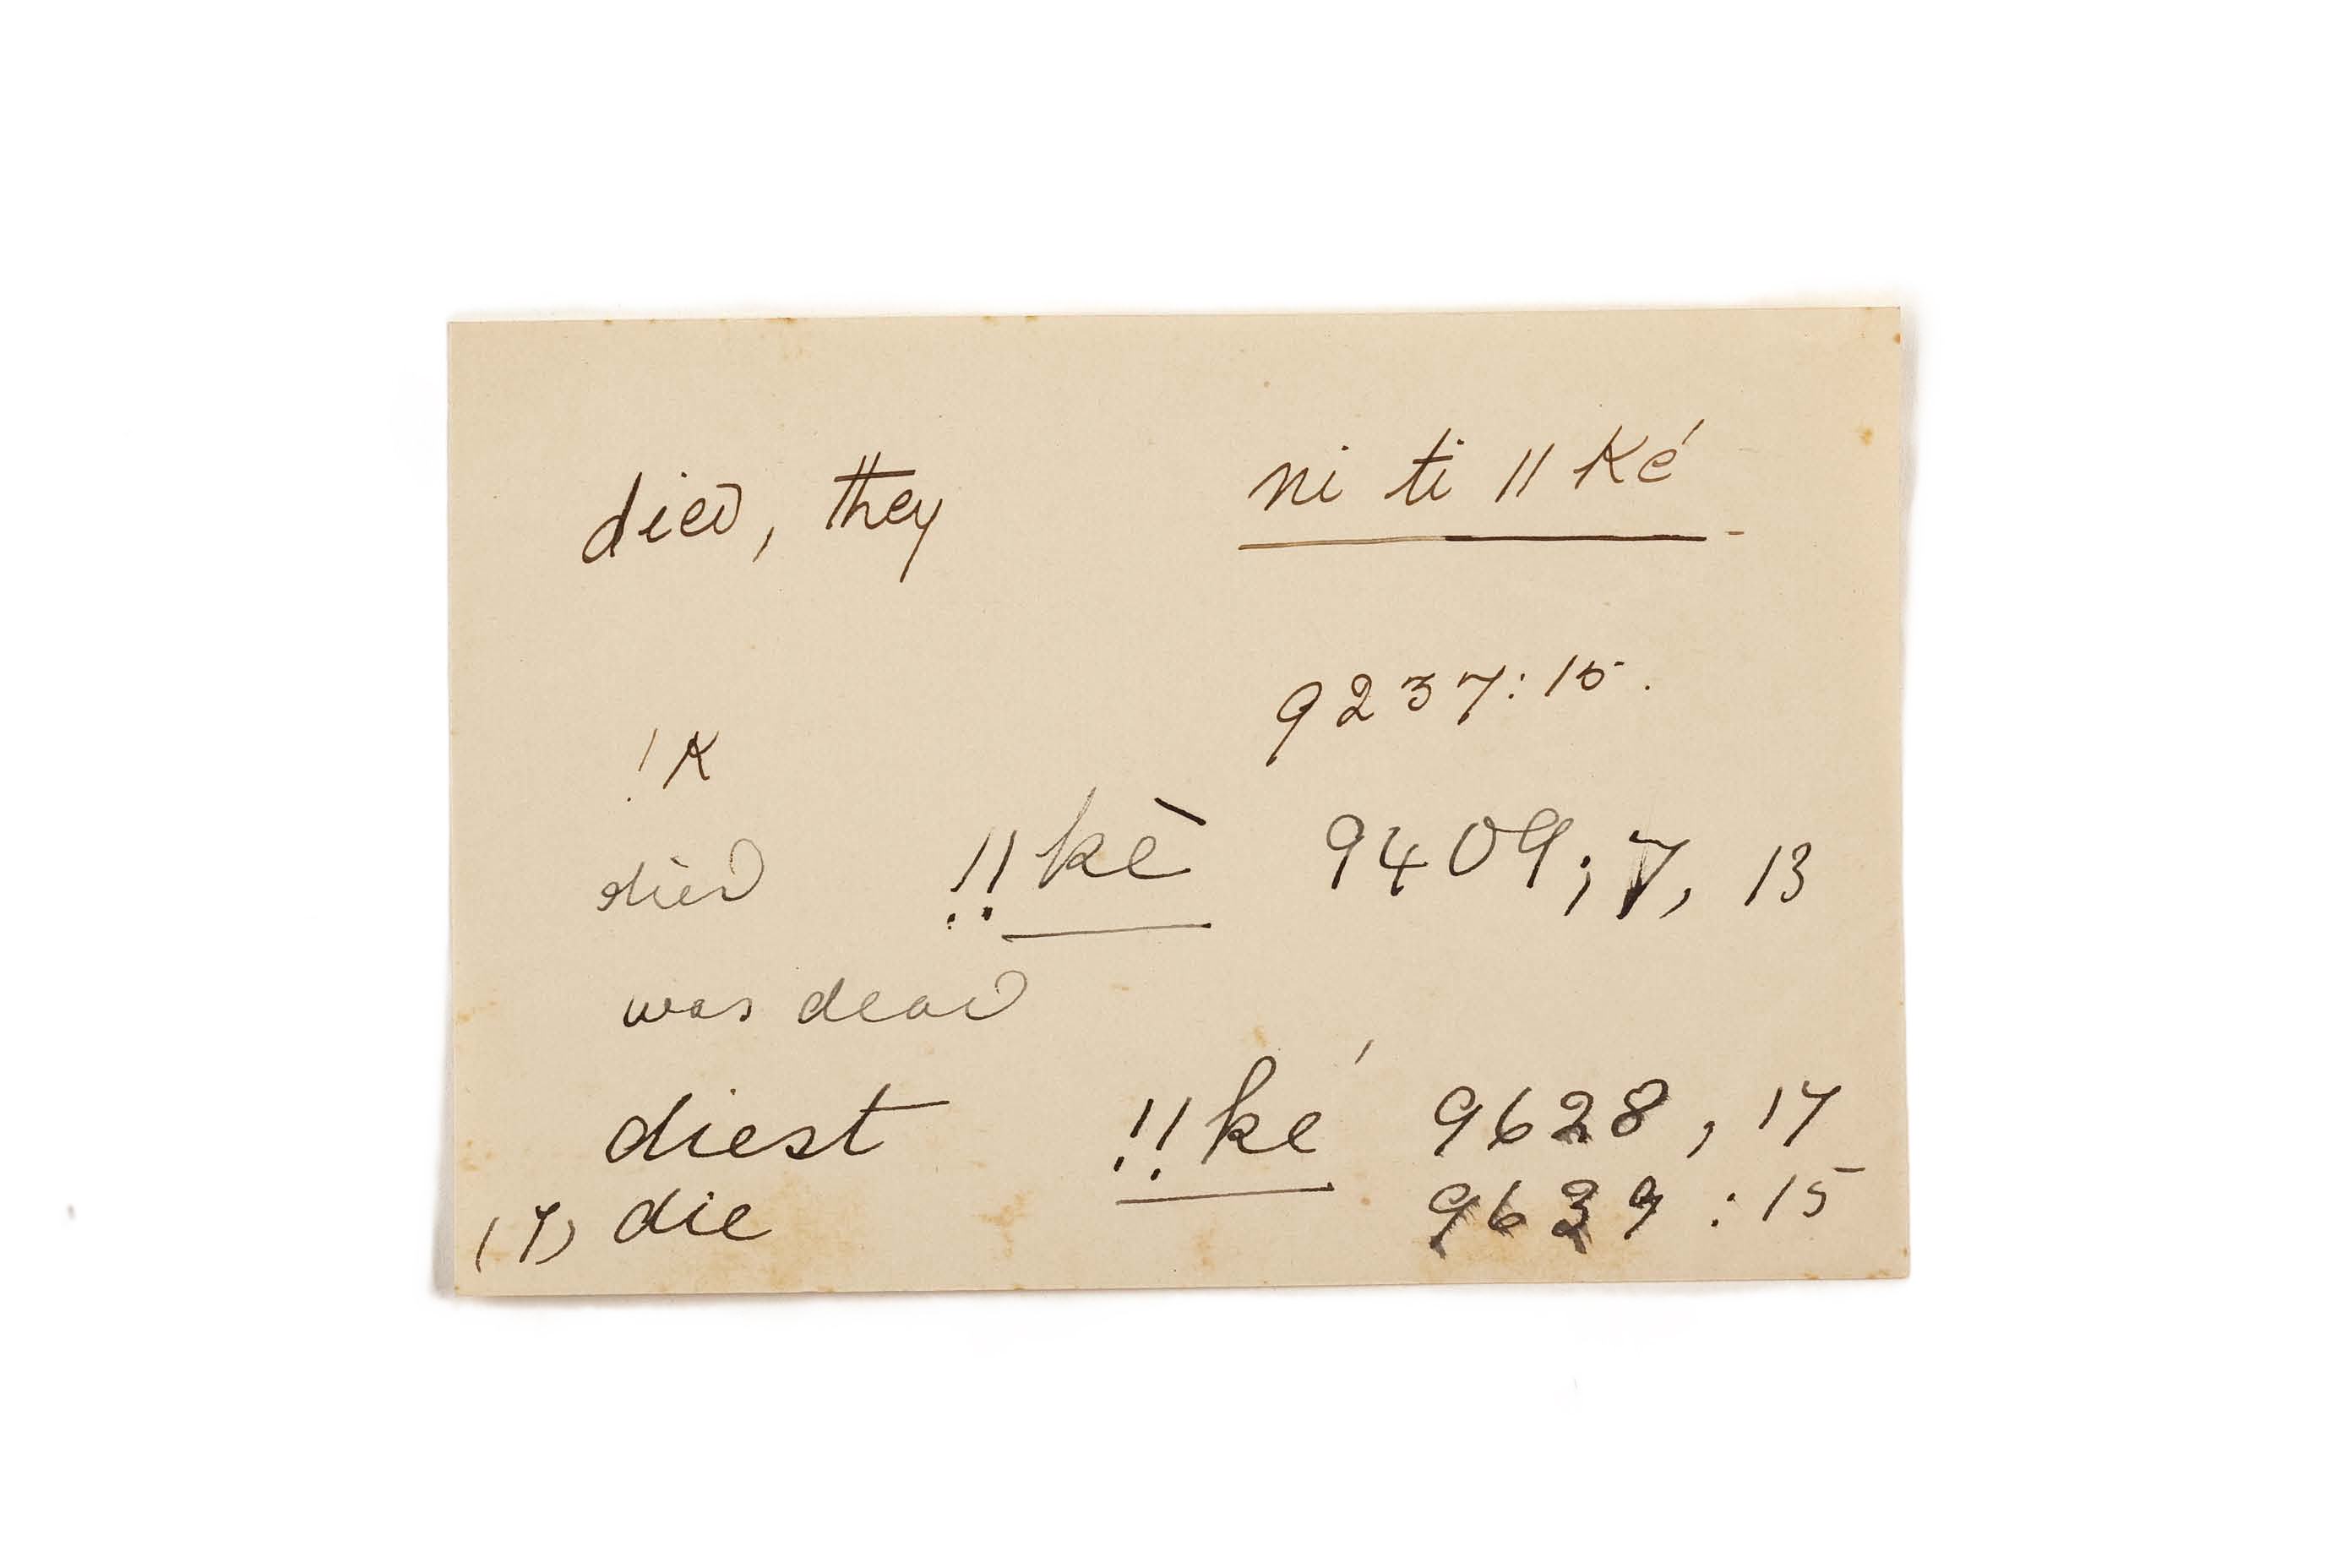 died, they ni ti ǁ ké
9237:15.
!K
died !!kè 9409; 7, 13
was dead
diest !!ké 9628, 17
(7) die 9639 : 15